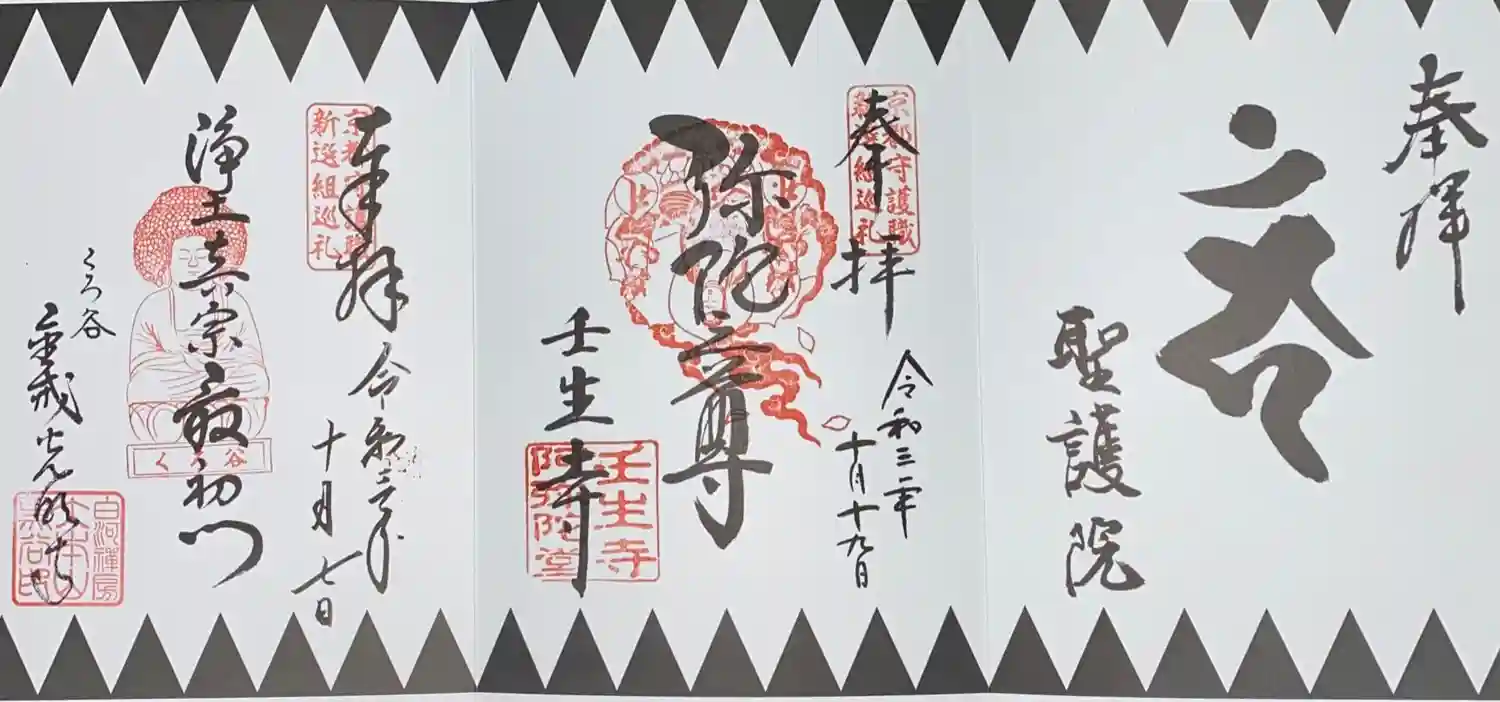 奉拝
聖護院
京都守護職
新選組巡礼
奉拝
令和三年
十月十九日
弥陀三尊
壬生寺
壬生寺
阿弥陀堂
京都守護職
新選組巡礼
奉拝
令和三年
十月七日
浄土真宗最初門
くろ谷
くろ谷
金戒光明寺
白河禅房
大本山
黒谷印